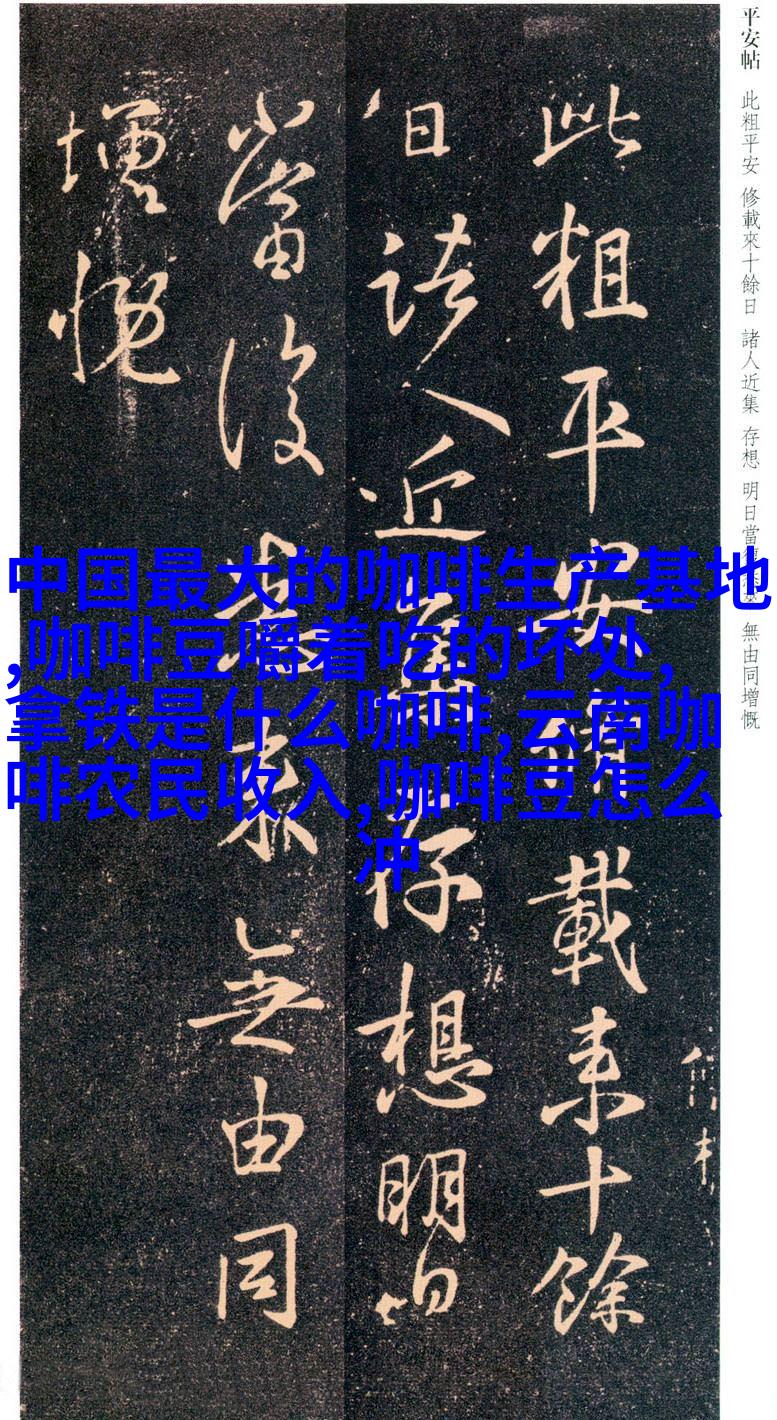 平安帖 此粗平安 修載來十餘日 諸人近集 存想 明日當 無由同增慨
此粗平安載来十餘
日諸人近存想明日
當復来無由同
增慨
中国最大的咖啡生产基地
,咖啡豆嚼着吃的坏处,
拿铁是什么咖啡,云南咖
啡农民收入,咖啡豆怎么
冲